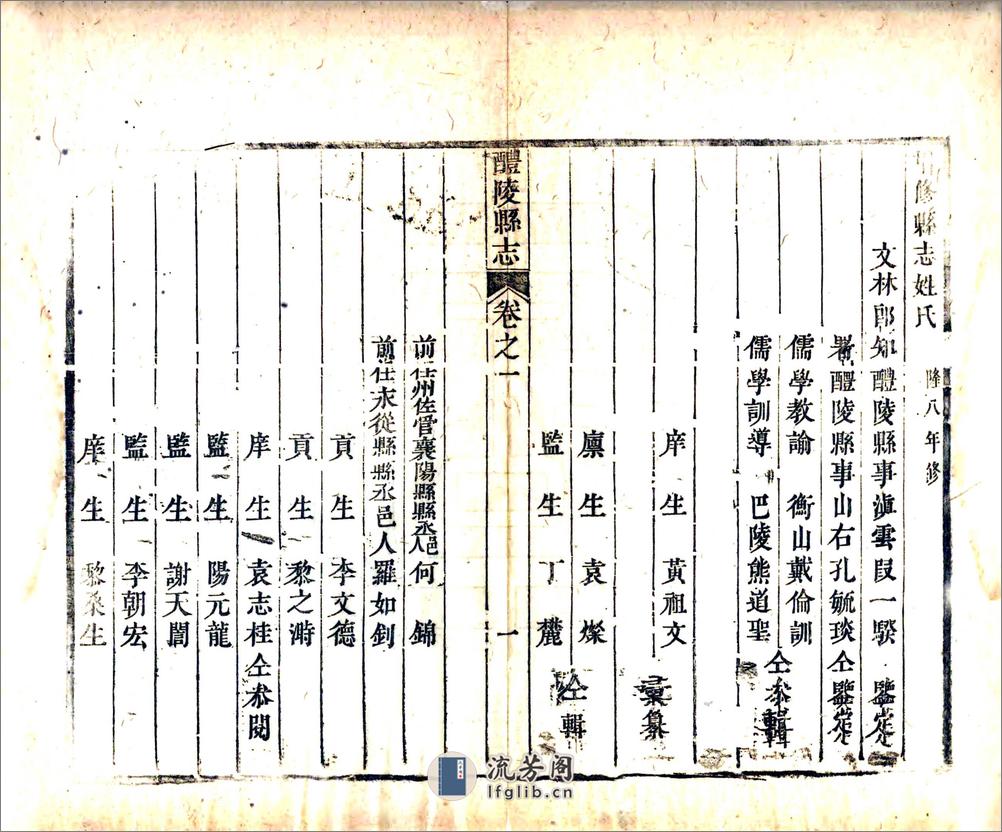 修縣志姓氏 隆八年修
文林郎知醴陵縣事滇雲段一騤 鑒定
署醴陵縣事山右孔毓琰仝鑒定
儒學教諭 衡山戴倫訓
儒學訓導 巴陵熊道聖 仝叅輯
庠生 黃祖文 彙纂
廪生 袁燦
監生 丁麓 仝輯
醴陵縣志 卷之一 一
前任州佐管襄陽縣縣丞邑人何錦
前任永從縣縣丞邑人羅如釗
貢生 李文德
貢生 黎之溡
庠生 袁志桂仝叅閱
監生 陽元龍
監生 謝天闇
監生 李朝宏
庠生 黎桑生
流芳阁
lfglib.cn